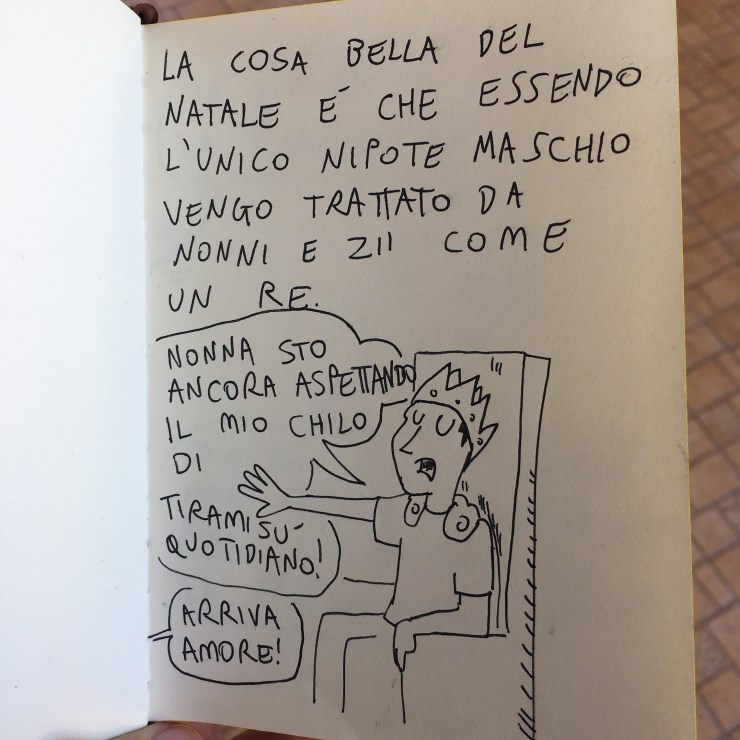 LA COSA BELLA DEL
NATALE E' CHE ESSENDO
L'UNICO NIPOTE MASCHIO
VENGO TRATTATO DA
NONNI E ZII COME
UN RE.
NONNA STO
ANCORA ASPETTANDO
IL MIO CHILO
DI
TIRAMISU'
QUOTIDIANO!
ARRIVA
AMORE!